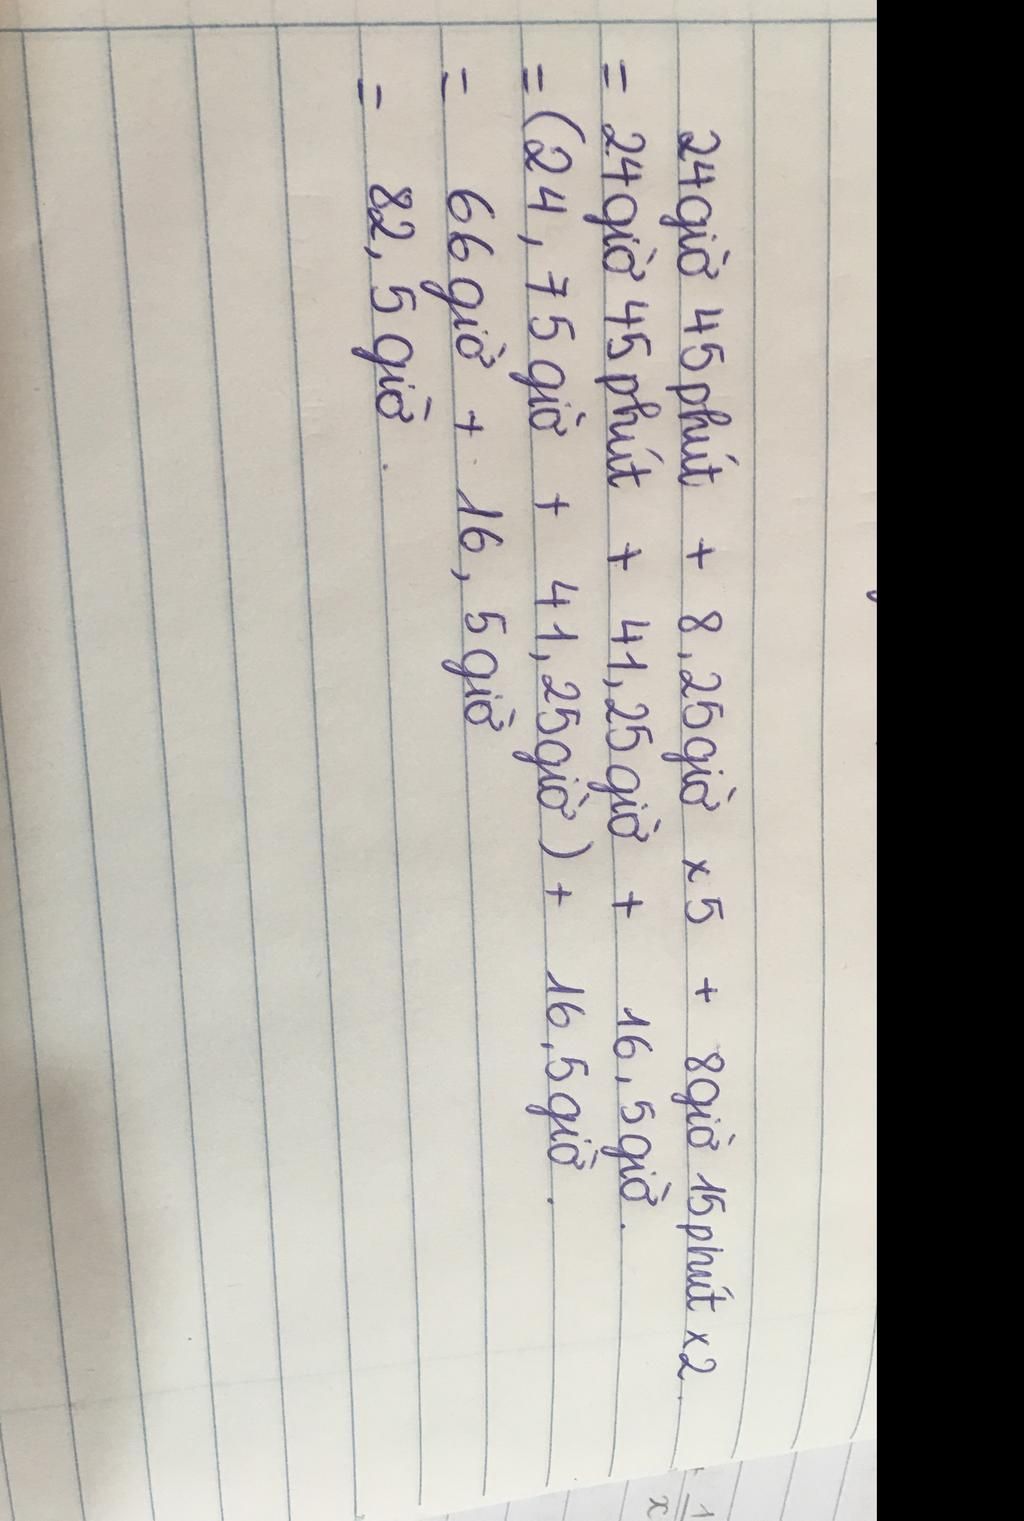 24giờ 45phút + 8,25giờ x5 + 8giờ 15phút x2.
= 24giờ 45phút + 41,25giờ + 16,5giờ.
=(24,75giờ + 41,25giờ)+ 16,5giờ.
= 66giờ + 16,5giờ
= 82,5giờ.
1
x